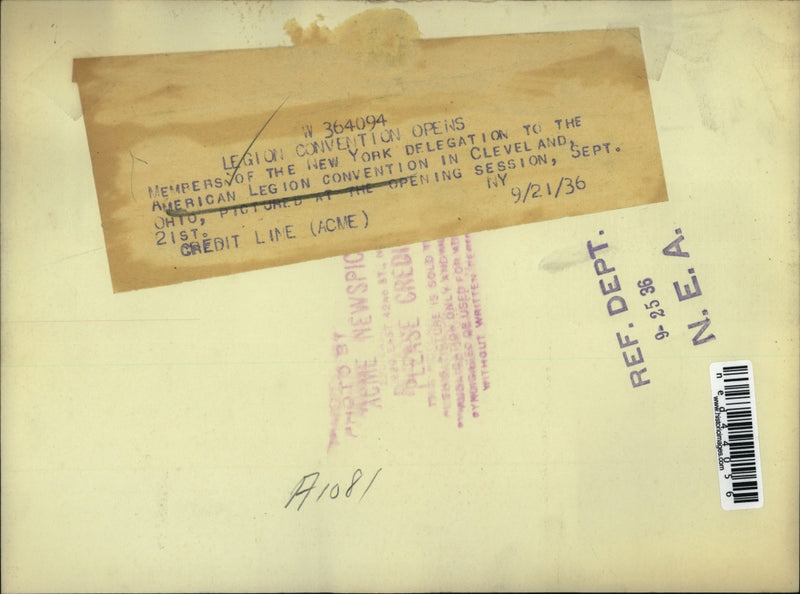 W 364094
LEGION CONVENTION OPENS
MEMPERS OF THE NEW YORK DELEGATION TO THE
AMERICAN LEGION CONVENTION IN CLEVELAND,
OHIO, PICTURED AT THE OPENING SESSION, SEPT.
21ST.
NY 9/21/36
CREDIT LINE (ACME)
PHOTO BY
ACME NEWSPIC
EAST 42ND ST., N
PLEASE CREDI
PICTURE IS SOLD
ONLY AND
OR USED FOR
WITHOUT WRITTEN
REF. DEPT.
9-25 36
N. E. A.
www.historicimages.com
ned44056
A1081